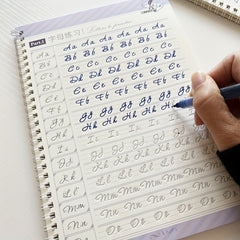 Part.1 字母练习
Aa Aa Aa Aa Aa Aa
Aa Bb Bb Bb Bb Bb Bb
Bb Cc Cc Cc Cc Cc Cc
Cc Dd Dd Dd Dd Dd Dd
Dd Ee Ee Ee Ee Ee Ee
Ee Ff Ff Ff Ff Ff Ff
Ff Gg Gg Gg Gg Gg
Gg Hh Hh Hh Hh Hh
Hh Ii Ii Ii Ii
Ii Jj Jj Jj Jj Jj
Jj Kk Kk Kk Kk Kk
Kk Ll Ll Ll Ll Ll
Ll Mm Mm Mm Mm Mm
Mm Nn Nn Nn Nn Nn
Nn Oo Oo Oo Oo